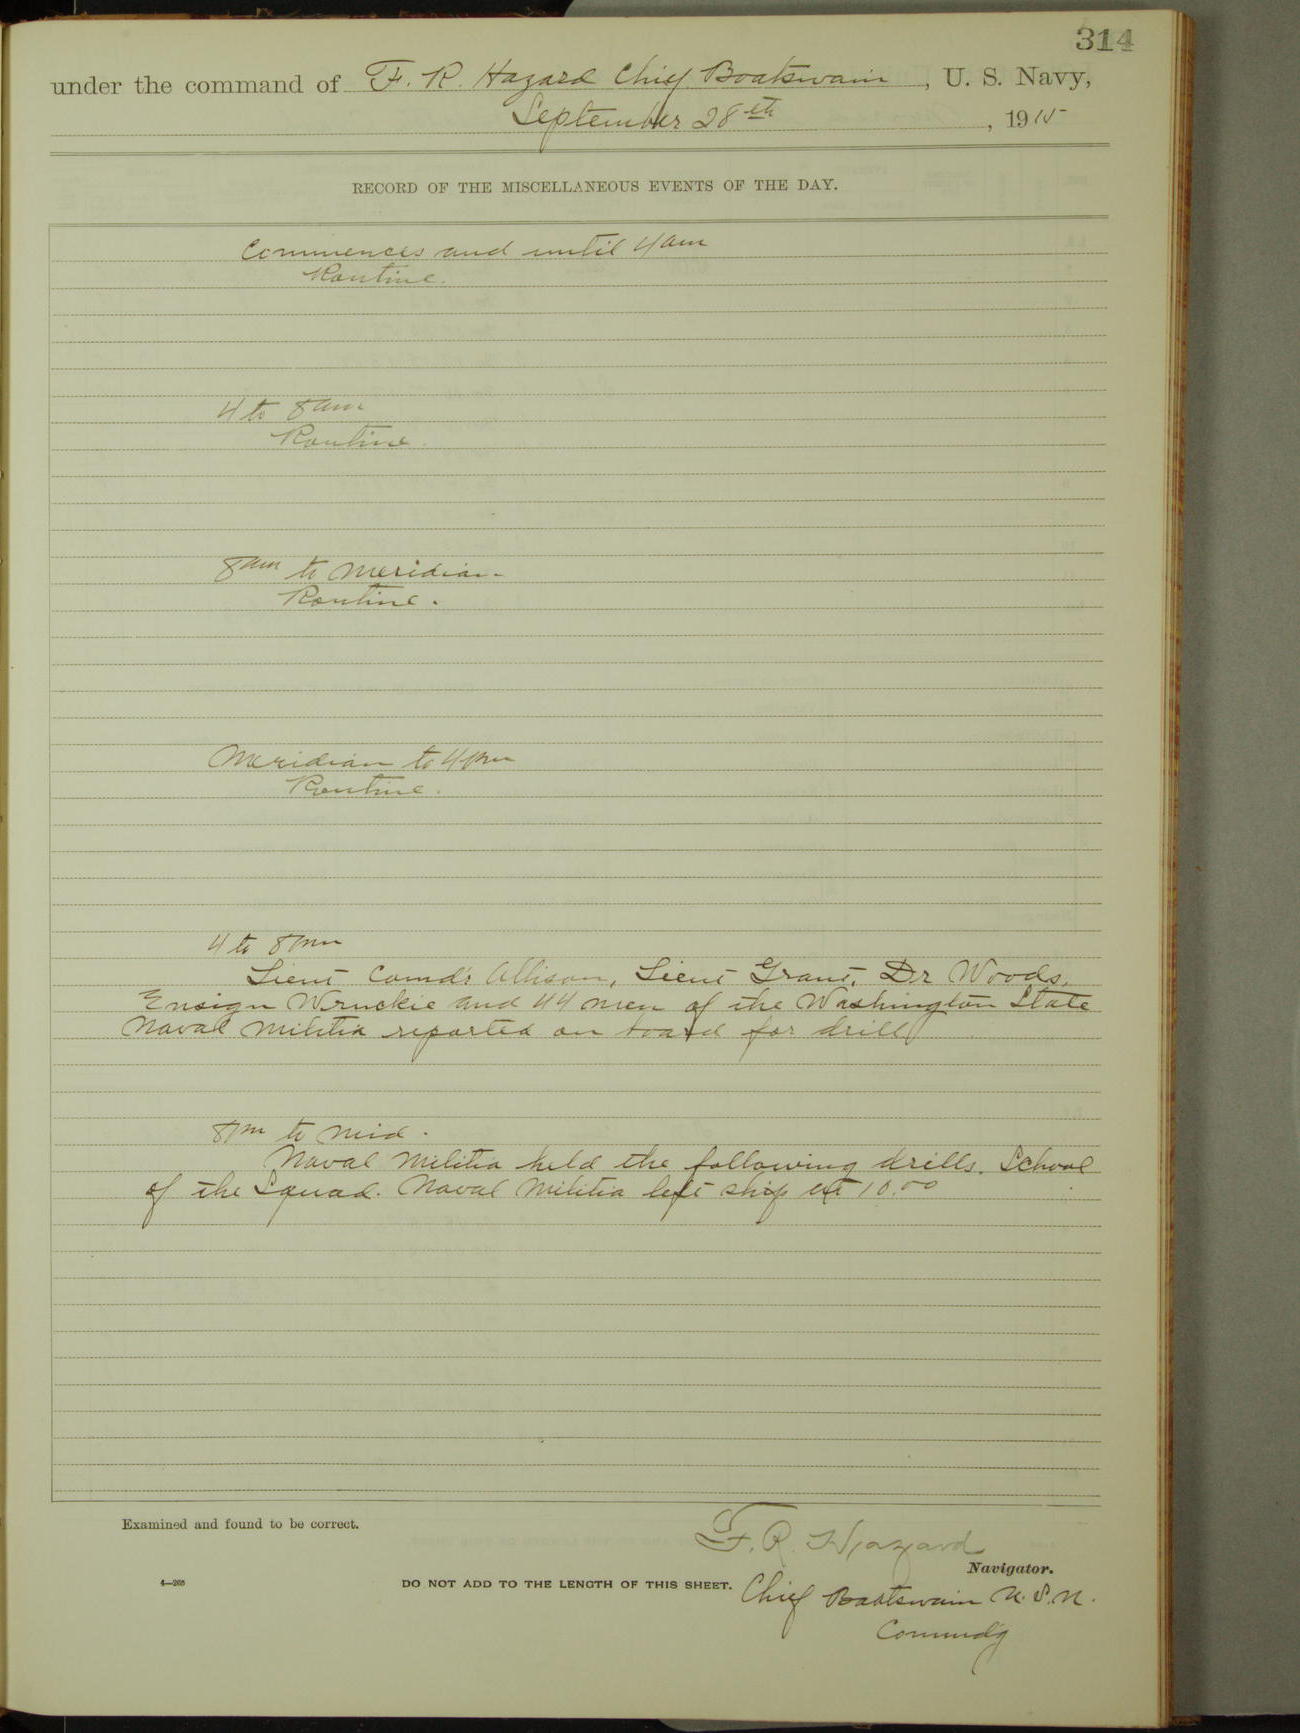 314
under the command of F. R. Hazard Chief Boatswain, U. S. Navy,
September 28th, 1915
RECORD OF THE MISCELLANEOUS EVENTS OF THE DAY.
Commences and until 4 am
Routine.
4 to 8 am
Routine.
8 am to Meridian.
Routine.
Meridian to 4 pm
Routine.
4 to 8 pm
Lieut Comd'r Allison, Lieut Grant, Dr Woods,
Ensign Wruckie and 44 men of the Washington State
Naval Militia reported on board for drill
8 pm to mid.
Naval Militia held the following drills. School
of the Squad. Naval Militia left ship at 10.00
Examined and found to be correct.
F. R. Hazard
Navigator.
4—268
DO NOT ADD TO THE LENGTH OF THIS SHEET.
Chief Boatswain U. S. N.
Commd'g